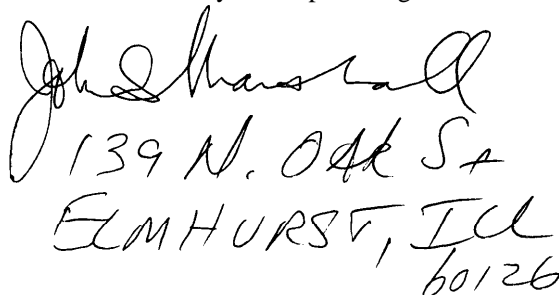 John S Marshall
139 N. OAK St
ELMHURST, ILL
60126